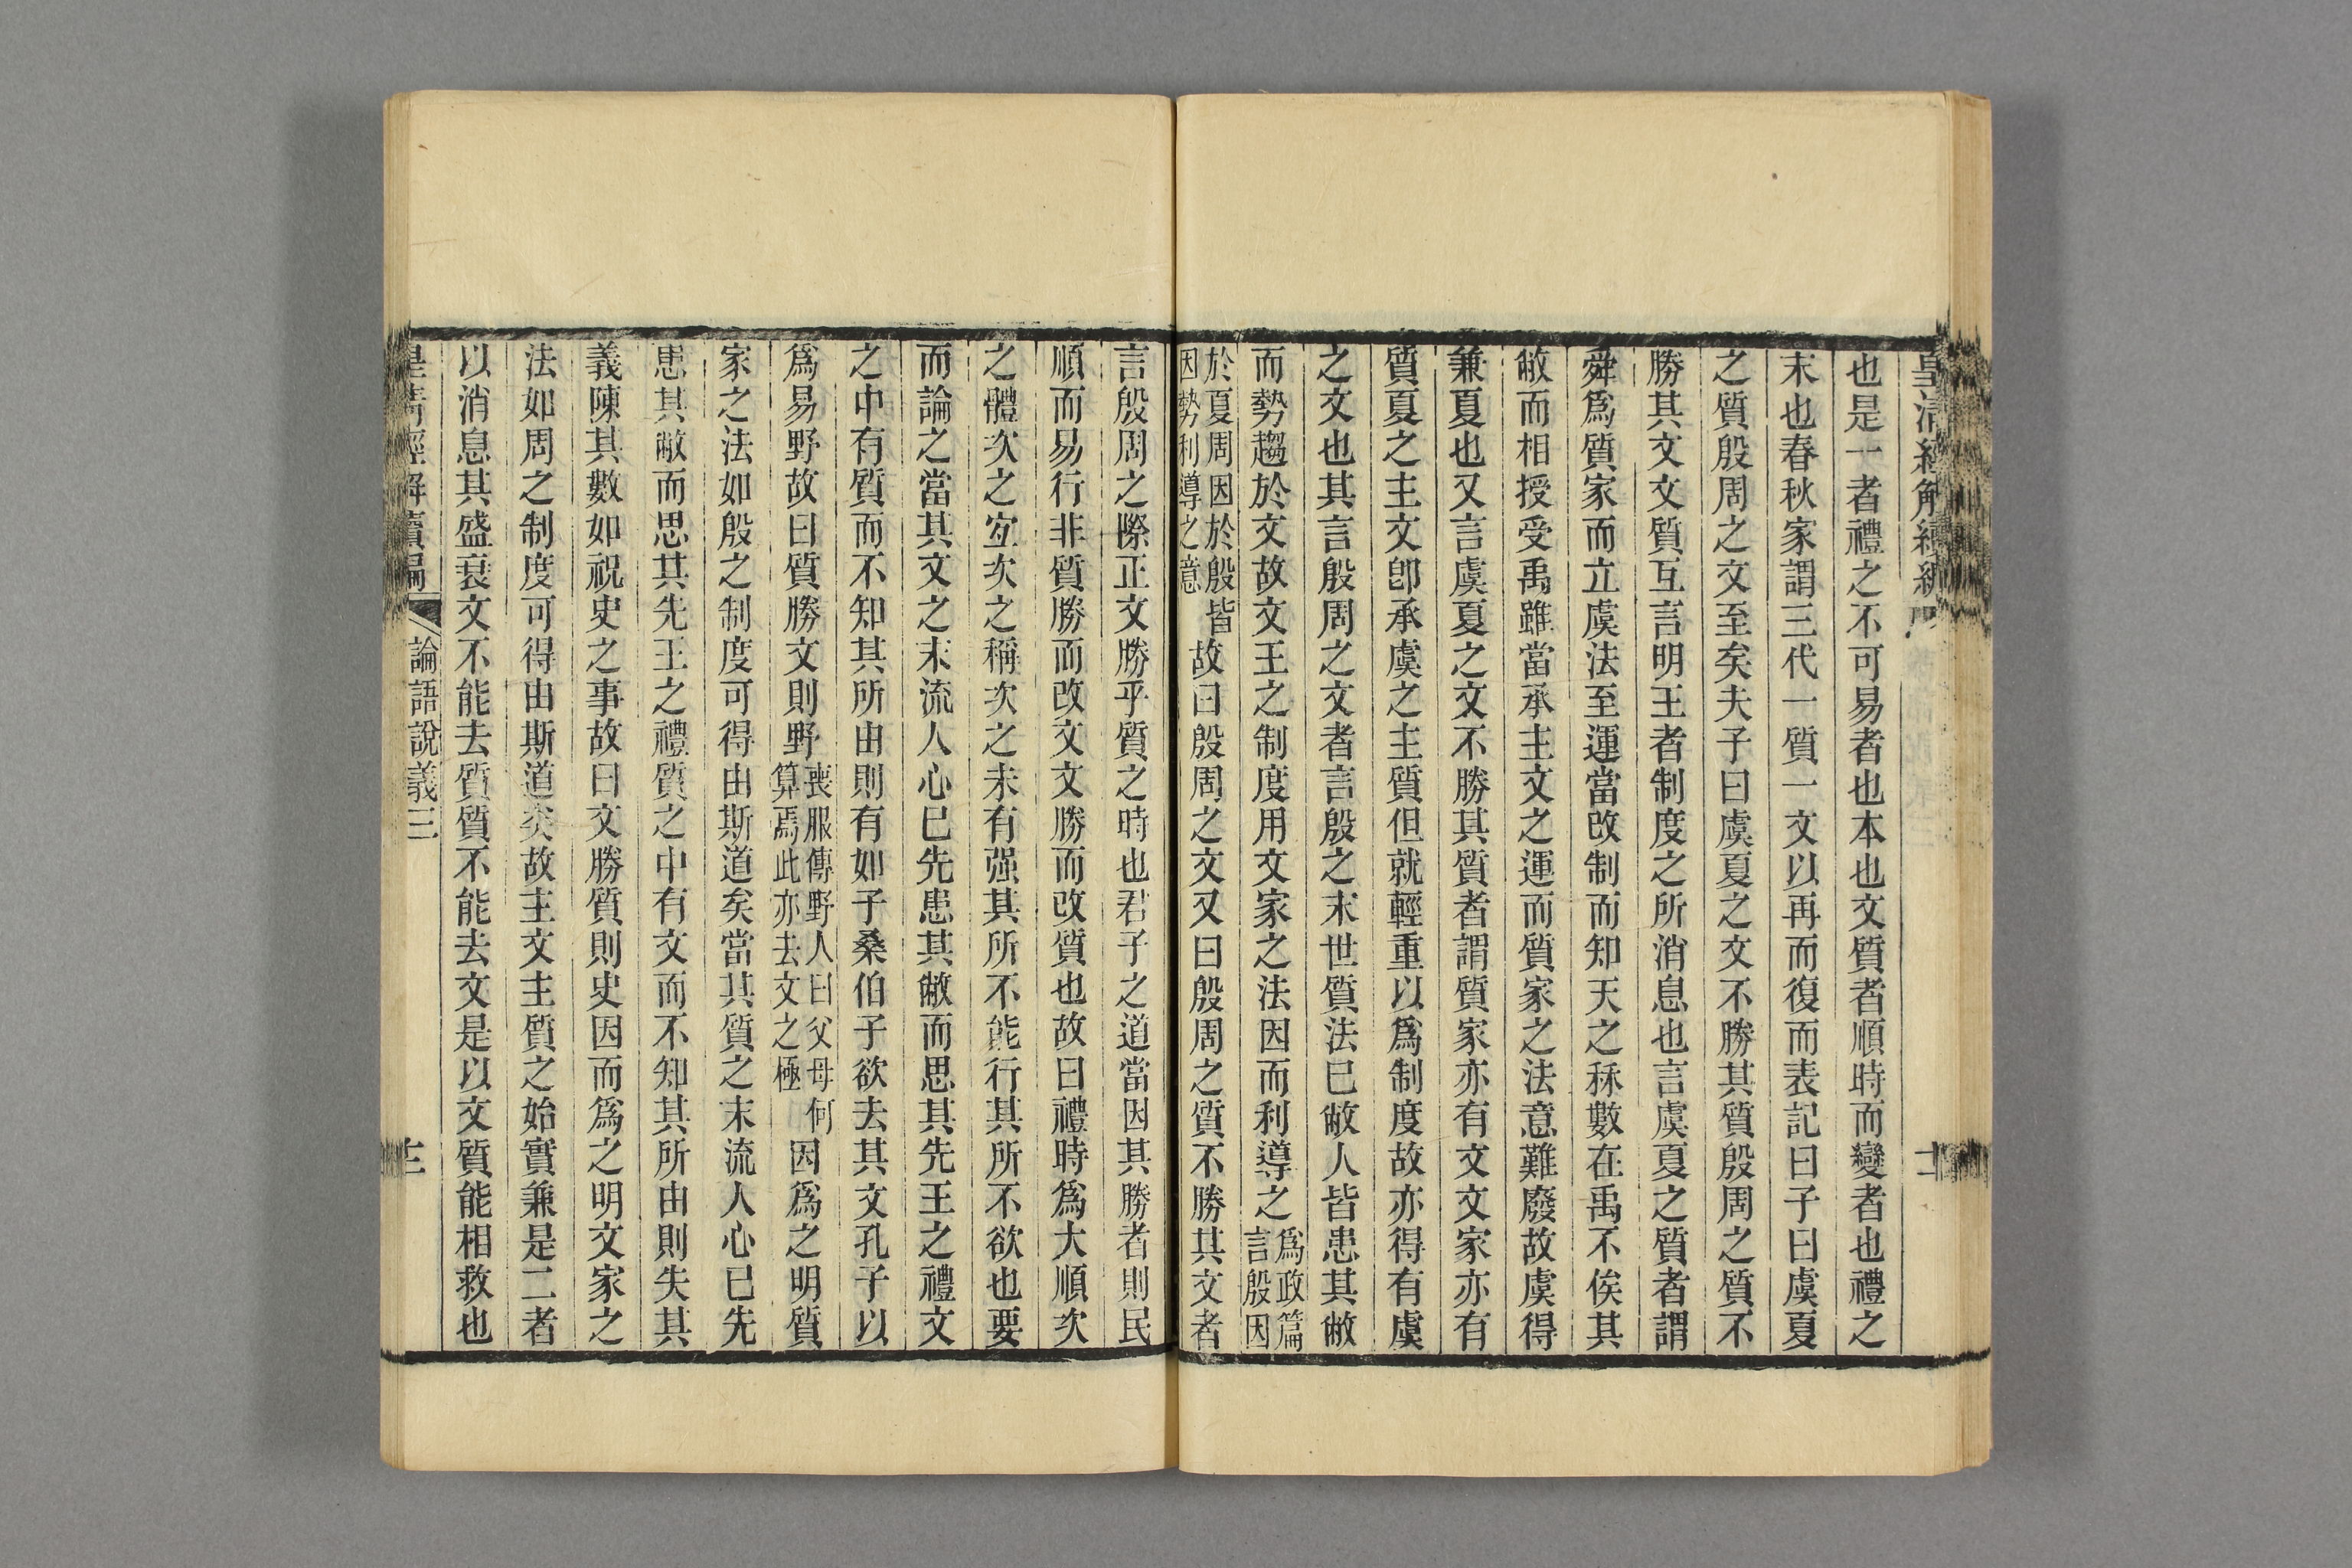 皇清經解續編
也是一者禮之不可易者也本也文質者順時而變者也禮之
末也春秋家謂三代一質一文以再而復而表記曰子曰虞夏
之質殷周之文至矣夫子曰虞夏之文不勝其質殷周之質不
勝其文文質互言明王者制度之所消息也言虞夏之質者謂
舜爲質家而立虞法至運當改制而知天之秝數在禹不俟其
敝而相授受禹雖當承主文之運而質家之法意難廢故虞得
兼夏也又言虞夏之文不勝其質者謂質家亦有文文家亦有
質夏之主文卽承虞之主質但就輕重以爲制度故亦得有虞
之文也其言殷周之文者言殷之末世質法已敝人皆患其敝
而勢趨於文故文王之制度用文家之法因而利導之爲政篇言殷因
於夏周因於殷皆因勢利導之意故曰殷周之文又曰殷周之質不勝其文者
言殷周之際正文勝乎質之時也君子之道當因其勝者則民
順而易行非質勝而改文文勝而改質也故曰禮時爲大順次
之體次之宐次之稱次之未有强其所不能行其所不欲也要
而論之當其文之末流人心已先患其敝而思其先王之禮文
之中有質而不知其所由則有如子桑伯子欲去其文孔子以
爲易野故曰質勝文則野喪服傳野人曰父母何算焉此亦去文之極因爲之明質
家之法如殷之制度可得由斯道矣當其質之末流人心已先
患其敝而思其先王之禮質之中有文而不知其所由則失其
義陳其數如祝史之事故曰文勝質則史因而爲之明文家之
法如周之制度可得由斯道矣故主文主質之始實兼是二者
以消息其盛衰文不能去質質不能去文是以文質能相救也
皇清經解續編
論語說義三